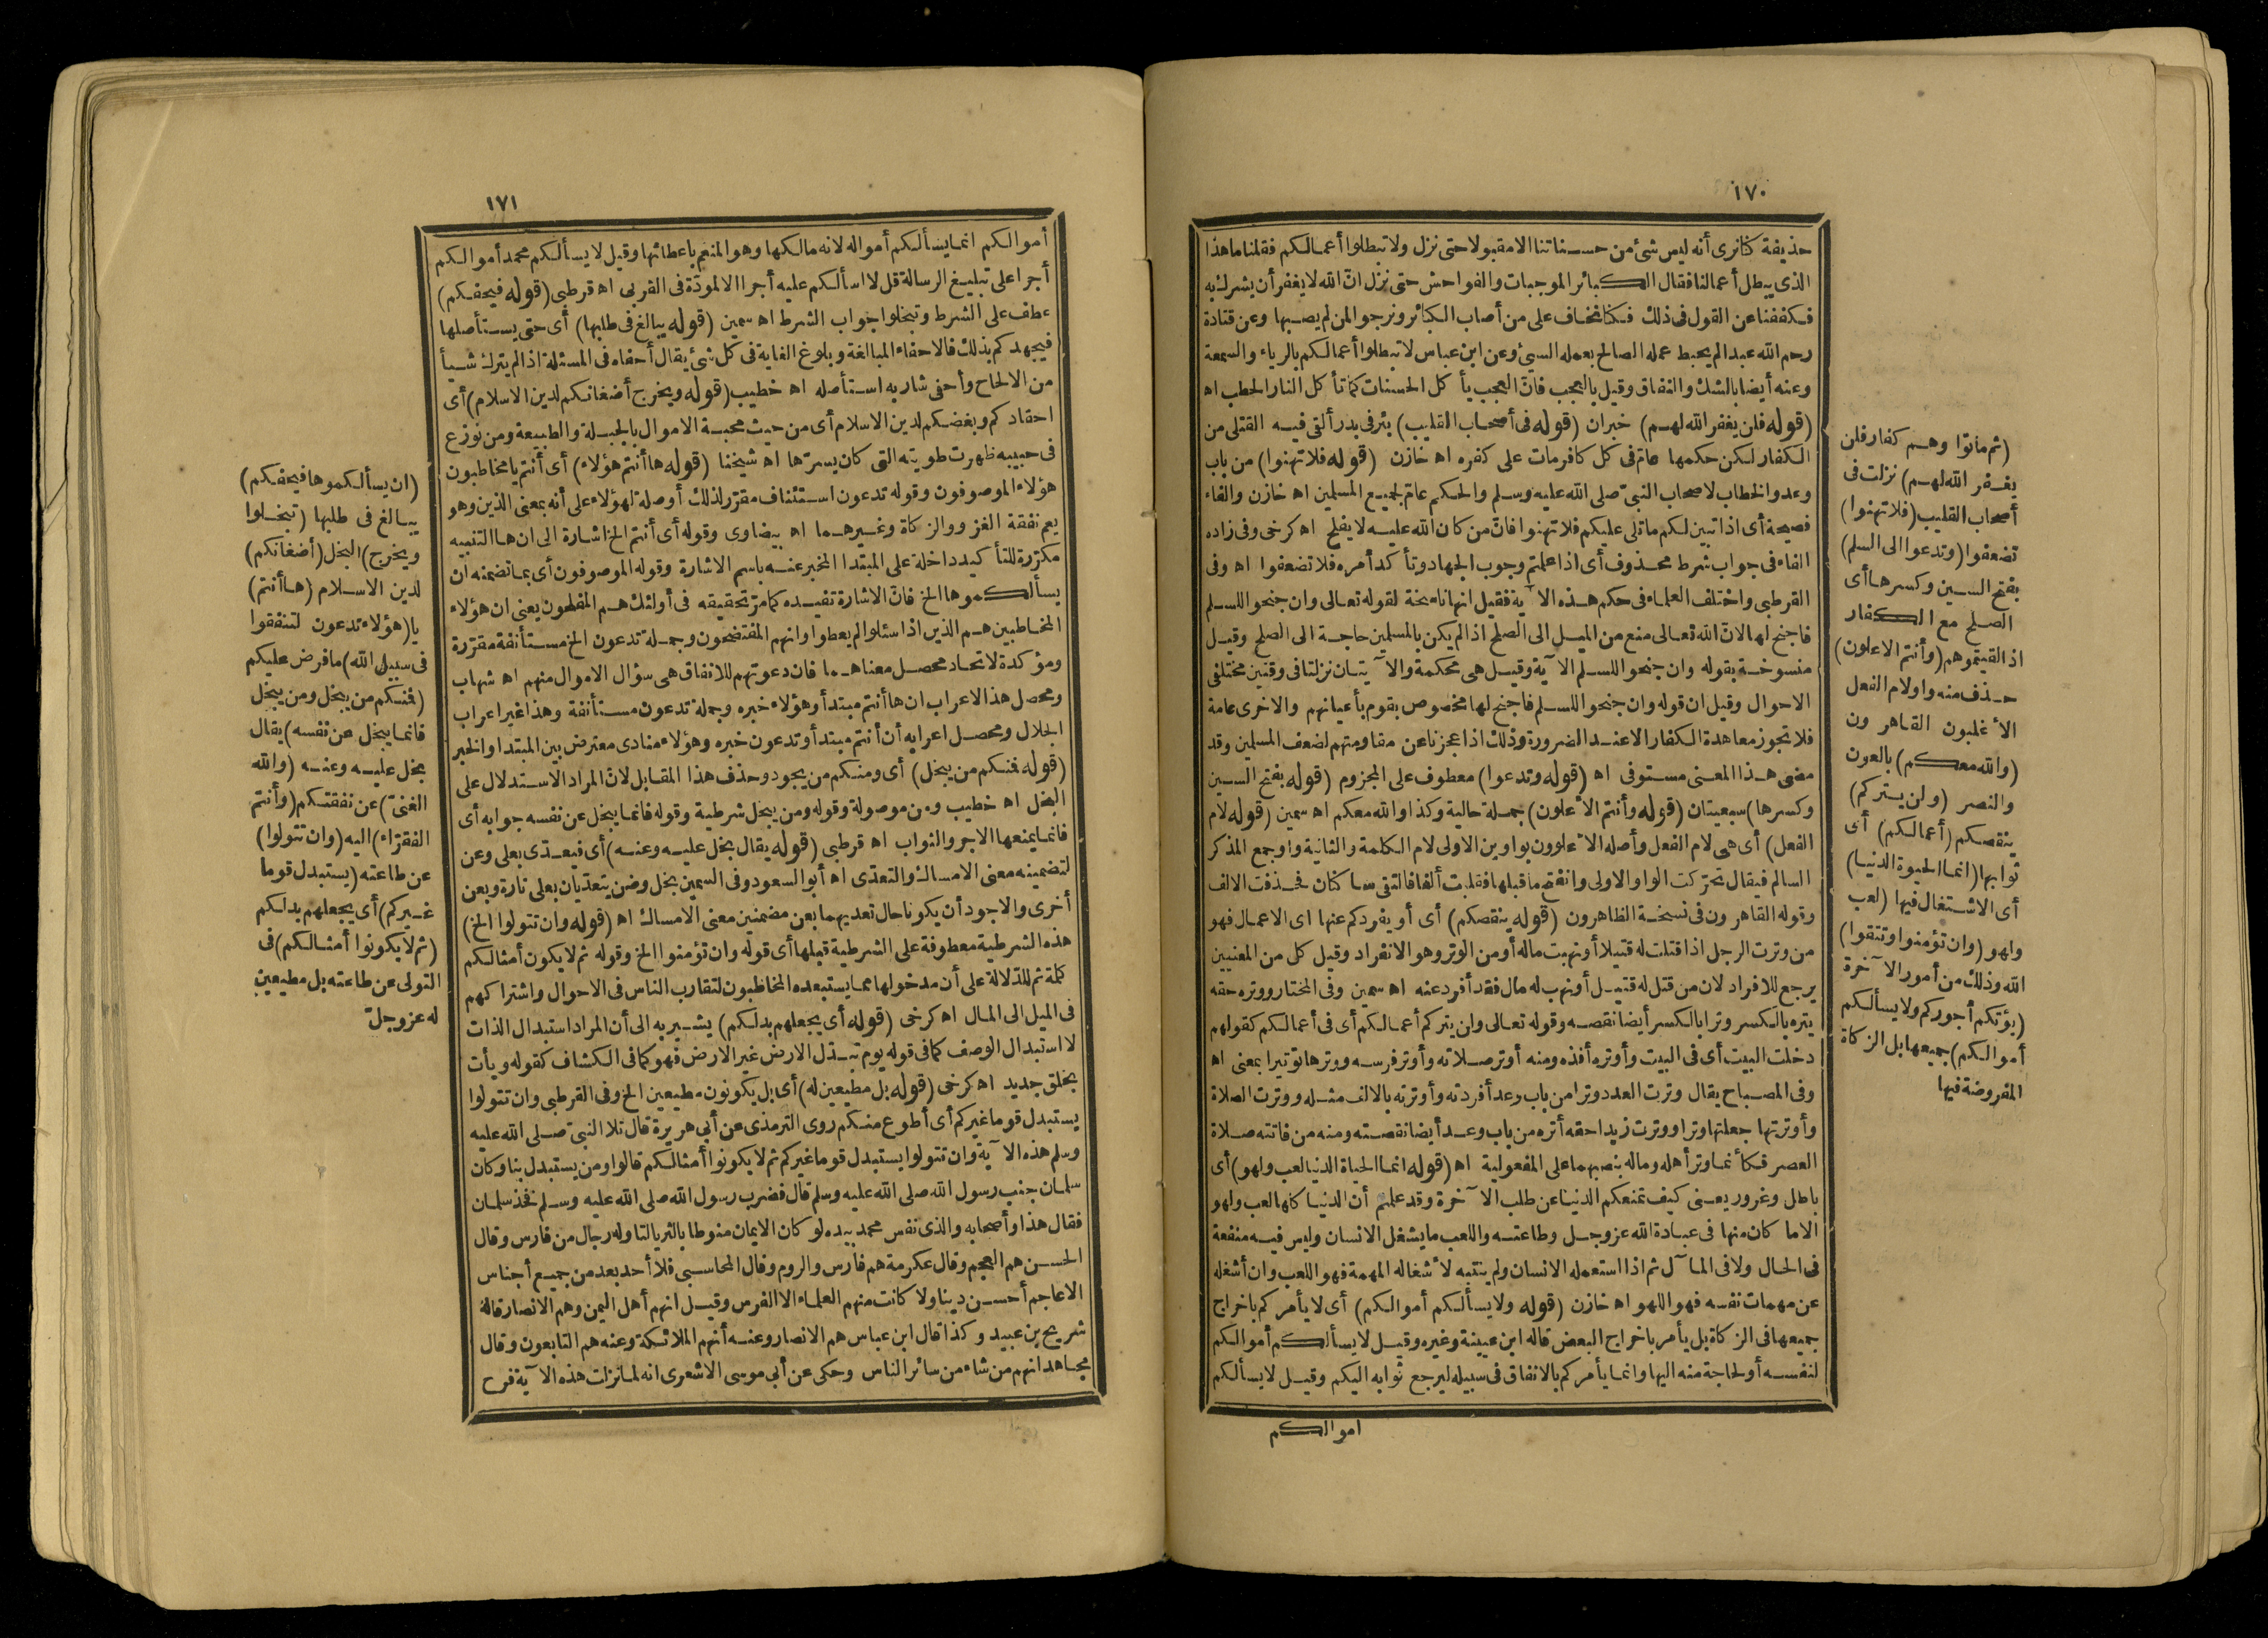 ١٧٠
حذيفة كنا نرى أنه ليس شئ من حسناتنا الا مقبولا حتى نزل ولا تبطلوا أعمالكم فقلنا ما هذا
الذى يبطل أعمالنا فقال الكبائر الموجبات والفواحش حتى نزل ان الله لا يغفر أن يشرك به
فكففنا عن القول فى ذلك فكنا نخاف على من أصاب الكبائر ونرجو المن لم يصبها وعن قتادة
رحم الله عبدا لم يحبط عمله الصالح بعمله السيئ وعن ابن عباس لا تبطلوا أعمالكم بالرياء والسمعة
وعنه أيضا بالشك والنفاق وقيل بالعجب فان العجب يأكل الحسنات كما تأكل النار الحطب اه
(قوله فلن يغفر الله لهم) خبر ان (قوله فى أصحاب القليب) بئر فى بدر ألقى فيه القتلى من
الكفار لكن حكمها عام فى كل كافر مات على كفره اه خازن (قوله فلا تهنوا) من باب
وعد والخطاب لاصحاب النبى صلى الله عليه وسلم والحكم عام لجميع المسلمين اه خازن والفاء
فصيحة أى اذا تبين لكم ما تلى عليكم فلا تهنوا فان من كان الله عليه لا يفلح اه كرخى وفى زاده
الفاء فى جواب شرط محذوف أى اذا علمتم وجوب الجهاد وتأكد أمره فلا تضعفوا اه وفى
القرطبى واختلف العلماء فى حكم هذه الآية فقيل انها ناسخة لقوله تعالى وان جنحوا للسلم
فاجنح لها لان الله تعالى منع من الميل الى الصلح اذا لم يكن بالمسلمين حاجة الى الصلح وقيل
منسوخة بقوله وان جنحوا للسلم الآية وقيل هى محكمة والآيتان نزلتا فى وقتين مختلفى
الاحوال وقيل ان قوله وان جنحوا للسلم فاجنح لها مخصوص بقوم بأعيانهم والاخرى عامة
فلا تجوز معاهدة الكفار الا عند الضرورة وذلك اذا عجزنا عن مقاومتهم لضعف المسلمين وقد
مضى هذا المعنى مستوفى اه (قوله وتدعوا) معطوف على المجزوم (قوله بفتح السين
وكسرها) سبعيتان (قوله وأنتم الاعلون) جملة حالية وكذا والله معكم اه سمين (قوله لام
الفعل) أى هى لام الفعل وأصله الاعلوون بواوين الاولى لام الكلمة والثانية واو جمع المذكر
السالم فيقال تحركت الواو الاولى وانفتح ما قبلها فقلبت ألفا فالتقى ساكنان فحذفت الالف
وقوله القاهرون فى نسخة الظاهرون (قوله ينقصكم) أى أو يفردكم عنها اى الاعمال فهو
من وترت الرجل اذا قتلت له قتيلا أو نهبت ماله أو من الوتر وهو الانفراد وقيل كل من المعنيين
يرجع للافراد لان من قتل له قتيل أو نهب له مال فقد أفرد عنه اه سمين وفى المختار ووتره حقه
يتره بالكسر وترا بالكسر أيضا نقصه وقوله تعالى ولن يتركم أعمالكم أى فى أعمالكم كقولهم
دخلت البيت أى فى البيت وأوتره أفذه ومنه أوتر صلاته وأوتر فرسه ووترها توتيرا بمعنى اه
وفى المصباح يقال وترت العدد وترا من باب وعد أفردته وأوترته بالالف مثله ووترت الصلاة
وأوترتها جعلتها وترا ووترت زيدا حقه أتره من باب وعد أيضا نقصته ومنه من فاتته صلاة
العصر فكأنما وتر أهله وماله بنصبهما على المفعولية اه (قوله انما الحياة الدنيا لعب ولهو) أى
باطل وغرور يعنى كيف تمنعكم الدنيا عن طلب الآخرة وقد علمتم أن الدنيا كلها لعب ولهو
الا ما كان منها فى عبادة الله عز وجل وطاعته واللعب ما يشغل الانسان وليس فيه منفعة
فى الحال ولا فى المآل ثم اذا استعمله الانسان ولم ينتبه لاشغاله المهمة فهو اللعب وان أشغله
عن مهمات نفسه فهو اللهو اه خازن (قوله ولا يسألكم أموالكم) أى لا يأمركم باخراج
جميعها فى الزكاة بل يأمر باخراج البعض قاله ابن عيينة وغيره وقيل لا يسألكم أموالكم
لنفسه أو لحاجة منه اليها وانما يأمركم بالانفاق فى سبيله ليرجع ثوابه اليكم وقيل لا يسألكم
اموالكم
(ثم ماتوا وهم كفار فلن
يغفر الله لهم) نزلت فى
أصحاب القليب (فلا تهنوا)
تضعفوا (وتدعوا الى السلم)
بفتح السين وكسرها أى
الصلح مع الكفار
اذا لقيتموهم (وأنتم الاعلون)
حذف منه واو لام الفعل
الأغلبون القاهرون
(والله معكم) بالعون
والنصر (ولن يتركم)
ينقصكم (أعمالكم) أى
ثوابها (انما الحيوة الدنيا)
أى الاشتغال فيها (لعب
ولهو (وان تؤمنوا وتتقوا)
الله وذلك من أمور الآخرة
(يؤتكم أجوركم ولا يسألكم
أموالكم) جميعها بل الزكاة
المفروضة فيها
١٧١
أموالكم انما يسألكم أمواله لانه مالكها وهو المنعم باعطائها وقيل لا يسألكم محمد أموالكم
أجرا على تبليغ الرسالة قل لا اسألكم عليه أجرا الا المودة فى القربى اه قرطبى (قوله فيحفكم)
عطف على الشرط وتبخلوا جواب الشرط اه سمين (قوله يبالغ فى طلبها) أى حتى يستأصلها
فيجهدكم بذلك فالاحفاء المبالغة وبلوغ الغاية فى كل شئ يقال أحفاه فى المسئلة اذا لم يترك شيأ
من الالحاح وأحفى شاربه استأصله اه خطيب (قوله ويخرج أضغانكم لدين الاسلام) أى
احقادكم وبغضكم لدين الاسلام أى من حيث محبة الاموال بالجبلة والطبيعة ومن نوزع
فى حبيبه ظهرت طويته التى كان يسرها اه شيخنا (قوله ها أنتم هؤلاء) أى أنتم يا مخاطبون
هؤلاء الموصوفون وقوله تدعون استئناف مقرر لذلك أو صلة لهؤلاء على أنه بمعنى الذين وهو
يعم نفقة الغزو والزكاة وغيرهما اه بيضاوى وقوله أى أنتم الخ اشارة الى ان ها التنبيه
مكررة للتأكيد داخلة على المبتدا المخبر عنه باسم الاشارة وقوله الموصوفون أى بما تضمنه ان
يسألكموها الخ فان الاشارة تفيده كما مر تحقيقه فى أولئك هم المفلحون يعنى ان هؤلاء
المخاطبين هم الذين اذا سئلوا لم يعطوا وانهم المفتضحون وجملة تدعون الخ مستأنفة مقررة
ومؤكدة لاتحاد محصل معناهما فان دعوتهم للانفاق هى سؤال الاموال منهم اه شهاب
ومحصل هذا الاعراب ان ها أنتم مبتدأ وهؤلاء خبره وجملة تدعون مستأنفة وهذا غير اعراب
الجلال ومحصل اعرابه أن أنتم مبتدأ وتدعون خبره وهؤلاء منادى معترض بين المبتدا والخبر
(قوله فمنكم من يبخل) أى ومنكم من يجود وحذف هذا المقابل لان المراد الاستدلال على
البخل اه خطيب ومن موصولة وقوله ومن يبخل شرطية وقوله فانما يبخل عن نفسه جوابه أى
فانما يمنعها الاجر والثواب اه قرطبى (قوله يقال بخل عليه وعنه) أى فيعدى بعلى وعن
لتضمينه معنى الامساك والتعدى اه أبو السعود وفى السمين بخل وضن يتعديان بعلى تارة وبعن
أخرى والاجود أن يكونا حال تعديهما بعن مضمنين معنى الامساك اه (قوله وان تتولوا الخ)
هذه الشرطية معطوفة على الشرطية قبلها أى قوله وان تؤمنوا الخ وقوله ثم لا يكون أمثالكم
كلمة ثم للدلالة على أن مدخولها مما يستبعده المخاطبون لتقارب الناس فى الاحوال واشتراكهم
فى الميل الى المال اه كرخى (قوله أى يجعلهم بدلكم) يشير به الى أن المراد استبدال الذات
لا استبدال الوصف كما فى قوله يوم تبدل الارض غير الارض فهو كما فى الكشاف كقوله ويأت
بخلق جديد اه كرخى (قوله بل مطيعين له) أى بل يكونون مطيعين الخ وفى القرطبى وان تتولوا
يستبدل قوما غيركم أى أطوع منكم روى الترمذى عن أبى هريرة قال تلا النبى صلى الله عليه
وسلم هذه الآية وان تتولوا يستبدل قوما غيركم ثم لا يكونوا أمثالكم قالوا ومن يستبدل بنا وكان
سلمان جنب رسول الله صلى الله عليه وسلم قال فضرب رسول الله صلى الله عليه وسلم فخذ سلمان
فقال هذا وأصحابه والذى نفس محمد بيده لو كان الايمان منوطا بالثريا لتناوله رجال من فارس وقال
الحسن هم العجم وقال عكرمة هم فارس والروم وقال المحاسبى فلا أحد بعد من جميع أجناس
الاعاجم أحسن دينا ولا كانت منهم العلماء الا الفرس وقيل انهم أهل اليمن وهم الانصار قاله
شريح بن عبيد وكذا قال ابن عباس هم الانصار وعنه أنهم الملائكة وعنه هم التابعون وقال
مجاهد انهم من شاء من سائر الناس وحكى عن أبى موسى الاشعرى انه لما نزلت هذه الآية فرح
(ان يسألكموها فيحفكم)
يبالغ فى طلبها (تبخلوا
ويخرج) البخل (أضغانكم)
لدين الاسلام (ها أنتم)
يا (هؤلاء تدعون لتنفقوا
فى سبيل الله) ما فرض عليكم
(فمنكم من يبخل ومن يبخل
فانما يبخل عن نفسه) يقال
بخل عليه وعنه (والله
الغنى) عن نفقتكم (وأنتم
الفقراء) اليه (وان تتولوا)
عن طاعته (يستبدل قوما
غيركم) أى يجعلهم بدلكم
(ثم لا يكونوا أمثالكم) فى
التولى عن طاعته بل مطيعين
له عز وجل